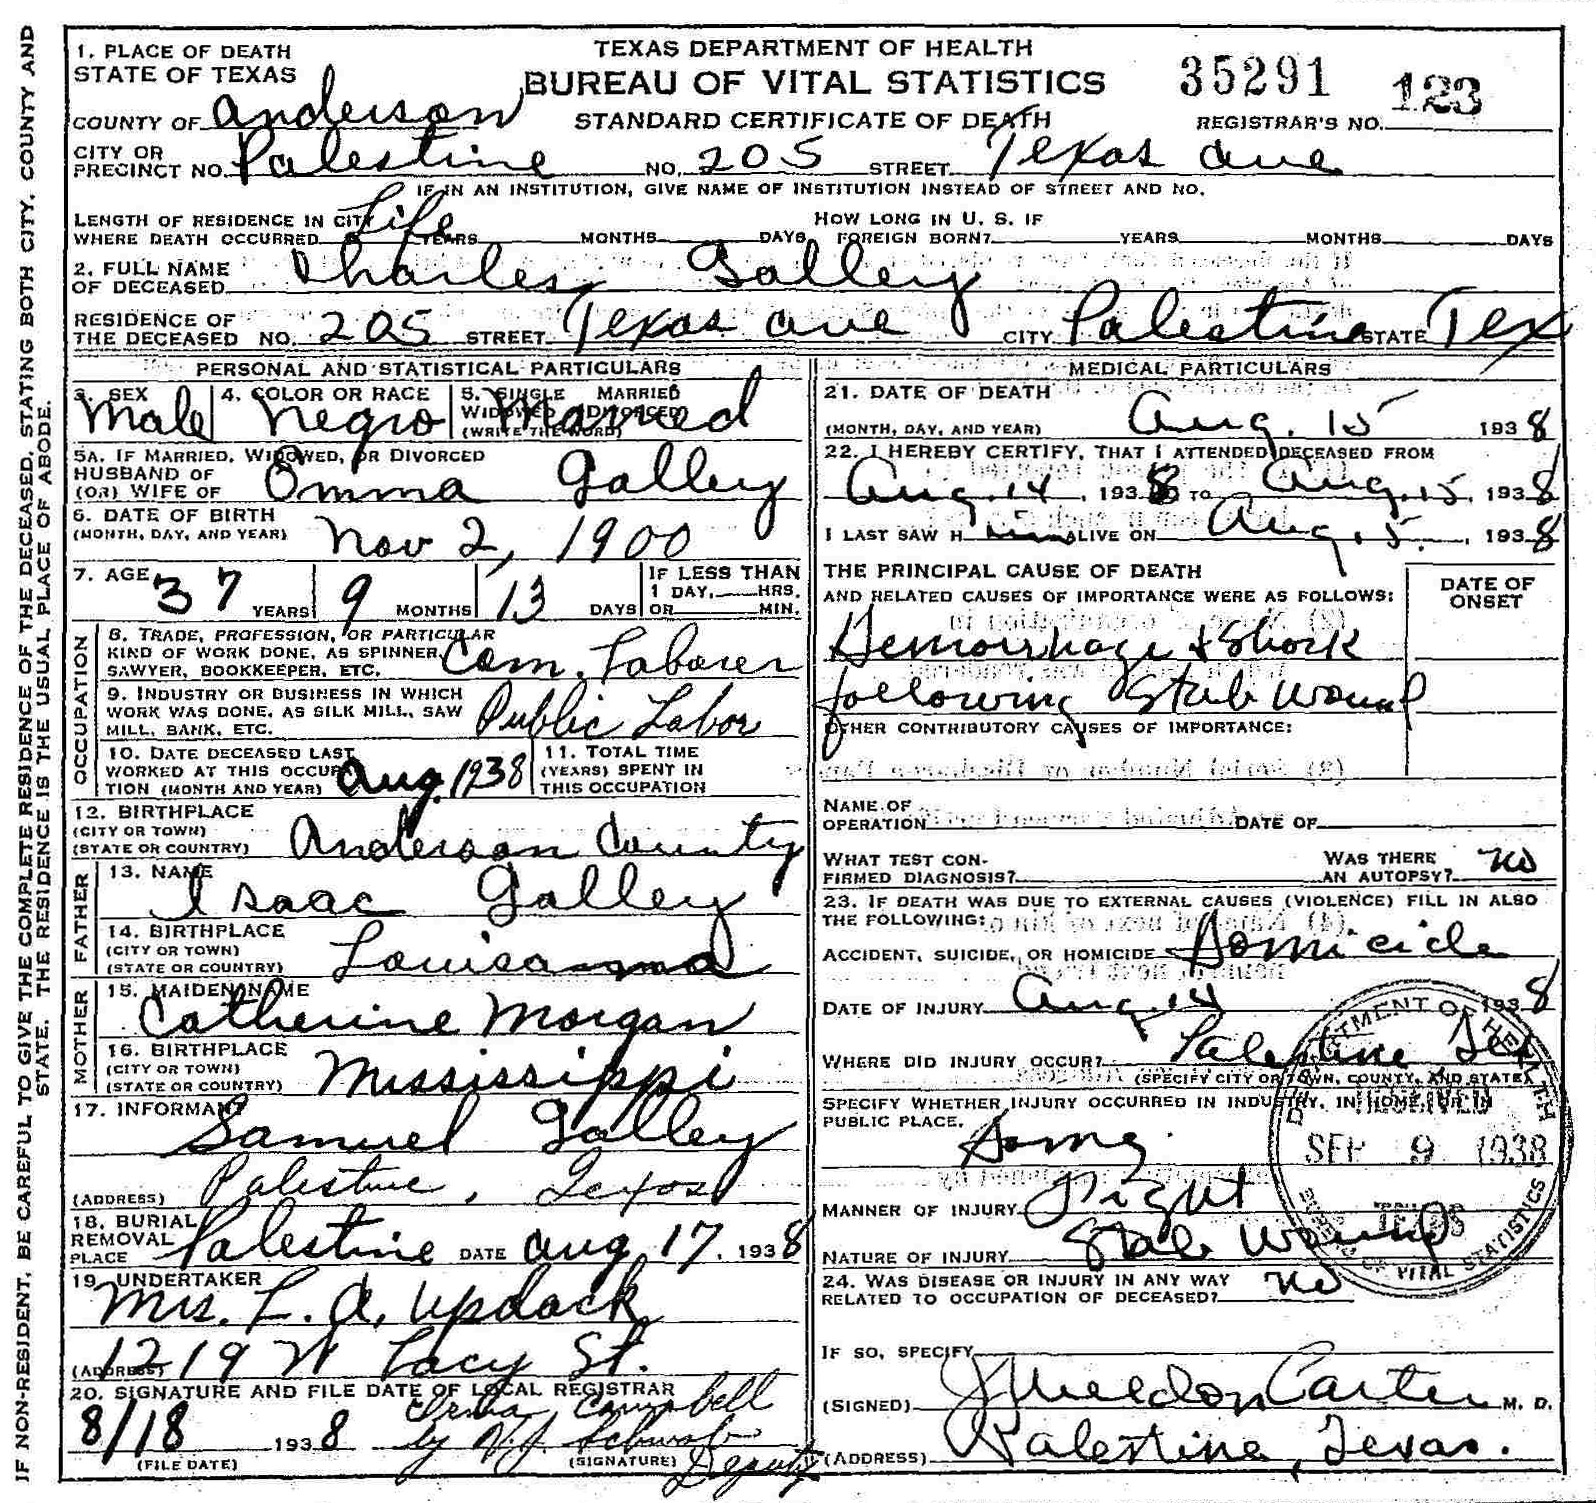 IF NON-RESIDENT, BE CAREFUL TO GIVE THE COMPLETE RESIDENCE OF THE DECEASED, STATING BOTH CITY, COUNTY AND
STATE. THE RESIDENCE IS THE USUAL PLACE OF ABODE.
1. PLACE OF DEATH
STATE OF TEXAS
TEXAS DEPARTMENT OF HEALTH
BUREAU OF VITAL STATISTICS
35291 123
COUNTY OF Anderson STANDARD CERTIFICATE OF DEATH REGISTRAR'S NO.
CITY OR
PRECINCT NO. Palestine NO. 205 STREET Texas Ave
IF IN AN INSTITUTION, GIVE NAME OF INSTITUTION INSTEAD OF STREET AND NO.
LENGTH OF RESIDENCE IN CITY HOW LONG IN U. S. IF
WHERE DEATH OCCURRED Life YEARS MONTHS DAYS FOREIGN BORN? YEARS MONTHS DAYS
2. FULL NAME
OF DECEASED Charles Galley
RESIDENCE OF
THE DECEASED NO. 205 STREET Texas Ave CITY Palestine STATE Tex
PERSONAL AND STATISTICAL PARTICULARS
3. SEX 4. COLOR OR RACE 5. SINGLE MARRIED
WIDOWED DIVORCED
(WRITE THE WORD)
Male Negro Married
5A. IF MARRIED, WIDOWED, OR DIVORCED
HUSBAND OF
(OR) WIFE OF Omma Galley
6. DATE OF BIRTH
(MONTH, DAY, AND YEAR) Nov 2, 1900
7. AGE 37 YEARS 9 MONTHS 13 DAYS IF LESS THAN
1 DAY, HRS.
OR MIN.
OCCUPATION
8. TRADE, PROFESSION, OR PARTICULAR
KIND OF WORK DONE, AS SPINNER,
SAWYER, BOOKKEEPER, ETC. Com. Laborer
9. INDUSTRY OR BUSINESS IN WHICH
WORK WAS DONE, AS SILK MILL, SAW
MILL, BANK, ETC. Public Labor
10. DATE DECEASED LAST
WORKED AT THIS OCCUPA
TION (MONTH AND YEAR) Aug. 1938
11. TOTAL TIME
(YEARS) SPENT IN
THIS OCCUPATION
12. BIRTHPLACE
(CITY OR TOWN)
(STATE OR COUNTRY) Anderson County
FATHER
13. NAME
Isaac Galley
14. BIRTHPLACE
(CITY OR TOWN)
(STATE OR COUNTRY) Louisanna
MOTHER
15. MAIDEN NAME
Catherine Morgan
16. BIRTHPLACE
(CITY OR TOWN)
(STATE OR COUNTRY) Mississippi
17. INFORMANT
Samuel Galley
(ADDRESS) Palestine, Texas
18. BURIAL
REMOVAL
PLACE Palestine DATE Aug 17. 1938
19. UNDERTAKER
Mrs. L. A. Updack
(ADDRESS) 1219 W Lacy St.
20. SIGNATURE AND FILE DATE OF LOCAL REGISTRAR
Erma Campbell
8/18 1938 by N. J. Schwab
(FILE DATE) (SIGNATURE) Deputy
MEDICAL PARTICULARS
21. DATE OF DEATH
(MONTH, DAY, AND YEAR) Aug. 15 1938
22. I HEREBY CERTIFY, THAT I ATTENDED DECEASED FROM
Aug. 14, 1938 TO Aug. 15, 1938
I LAST SAW H im ALIVE ON Aug. 15., 1938
THE PRINCIPAL CAUSE OF DEATH
AND RELATED CAUSES OF IMPORTANCE WERE AS FOLLOWS:
DATE OF
ONSET
Hemorrhage + Shock
following Stab wound
OTHER CONTRIBUTORY CAUSES OF IMPORTANCE:
NAME OF
OPERATION DATE OF
WHAT TEST CON-
FIRMED DIAGNOSIS?
WAS THERE
AN AUTOPSY? no
23. IF DEATH WAS DUE TO EXTERNAL CAUSES (VIOLENCE) FILL IN ALSO
THE FOLLOWING:
ACCIDENT, SUICIDE, OR HOMICIDE Homicide
DATE OF INJURY Aug. 14 1938
WHERE DID INJURY OCCUR? Palestine Tex
(SPECIFY CITY OR TOWN, COUNTY, AND STATE)
SPECIFY WHETHER INJURY OCCURRED IN INDUSTRY, IN HOME, OR IN
PUBLIC PLACE.
Home
MANNER OF INJURY Fight
NATURE OF INJURY Stab Wound
24. WAS DISEASE OR INJURY IN ANY WAY
RELATED TO OCCUPATION OF DECEASED? no
IF SO, SPECIFY
(SIGNED) J Sheldon Carter M. D.
(ADDRESS) Palestine, Texas.
DEPARTMENT OF HEALTH
RECEIVED
SEP 9 1938
TEXAS
BUREAU OF VITAL STATISTICS